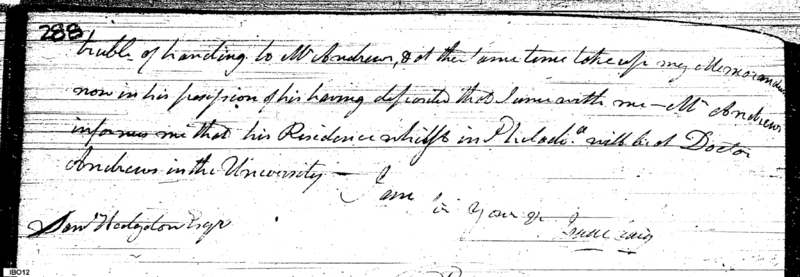 288
trouble of handing to Mr Andrews, & at the same time take up my Memorandum
now in his possession of his having deposited that sum with me — Mr Andrews
informes me that his Residence whilst in Philada. will be at Doctor
Andrews in the University —
I am
Yours &c
Saml Hodgdon Esqr
Isaac Craig
IBO12